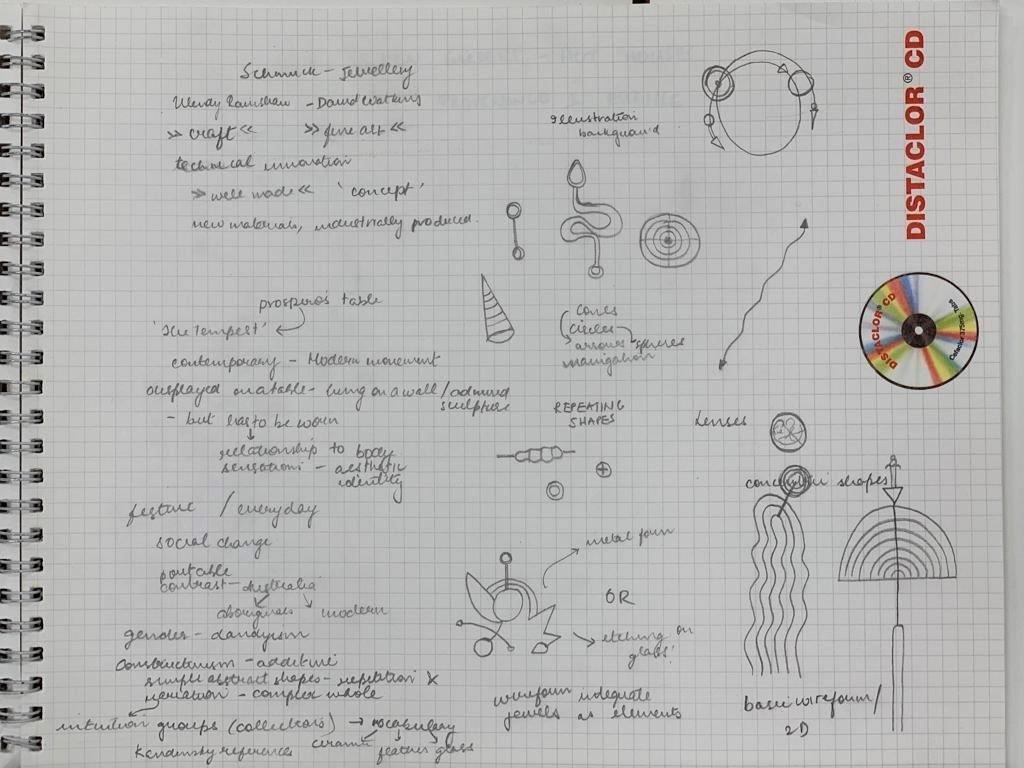 Schmuck - Jewellery
Wendy Ramshaw - David Watkins
>> craft << >> fine art <<
technical innovation
>> well made << 'concept'
new materials, industrially produced.
prospero's table
'The Tempest'
contemporary - Modern movement
displayed on a table - hung on a wall / admired
sculpture
- but has to be worn
relationship to body
sensation - aesthetic
identity
/ everyday
social change
portable
contrast - Australia
aboriginals modern
gender - dandyism
Constructivism - additive
simple abstract shapes - repetition &
variation - complex whole
intuition groups (collectors) → vocabulary
Kandinsky references ceramic feather glass
illustration
background
cones
circles
arrows spheres
navigation
REPEATING
SHAPES
metal form
OR
etching on
glass!
wireform
jewels as elements
Lenses
shapes
basic wireform /
2D
DISTACLOR® CD
DISTACLOR® CD